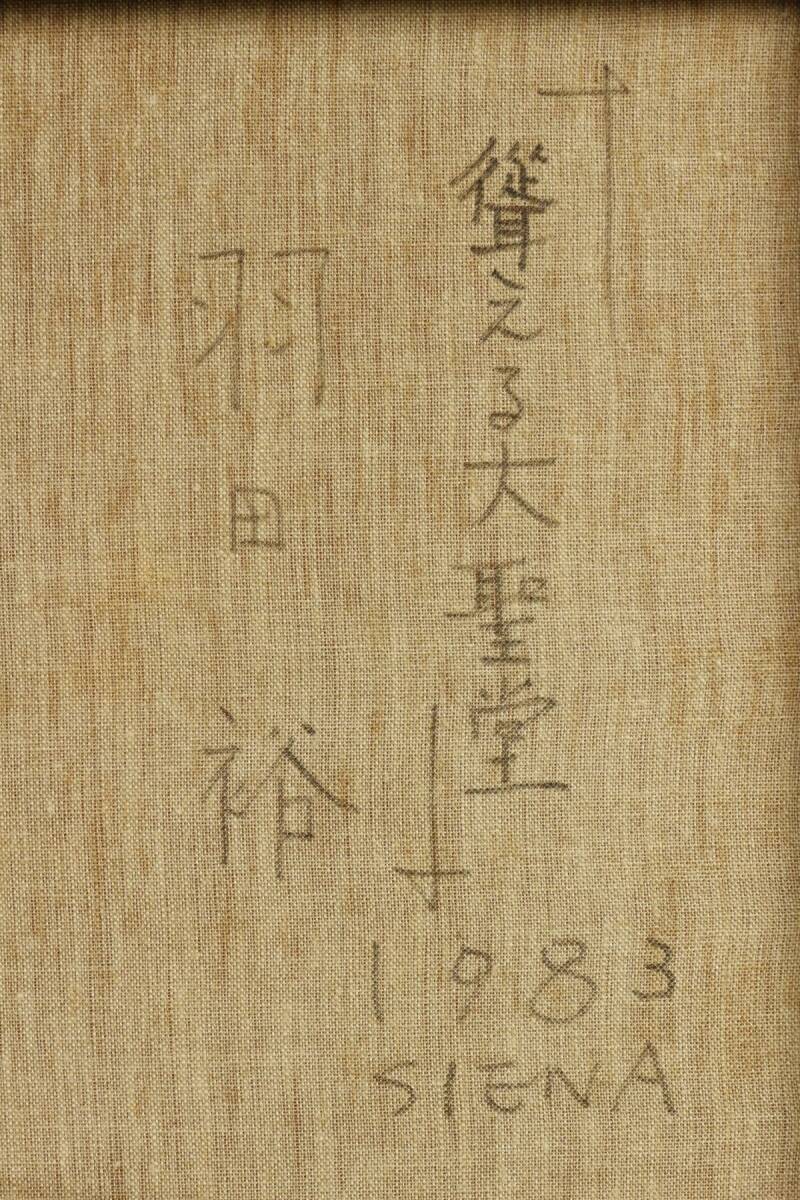 「聳える大聖堂」
羽田裕
1983
SIENA